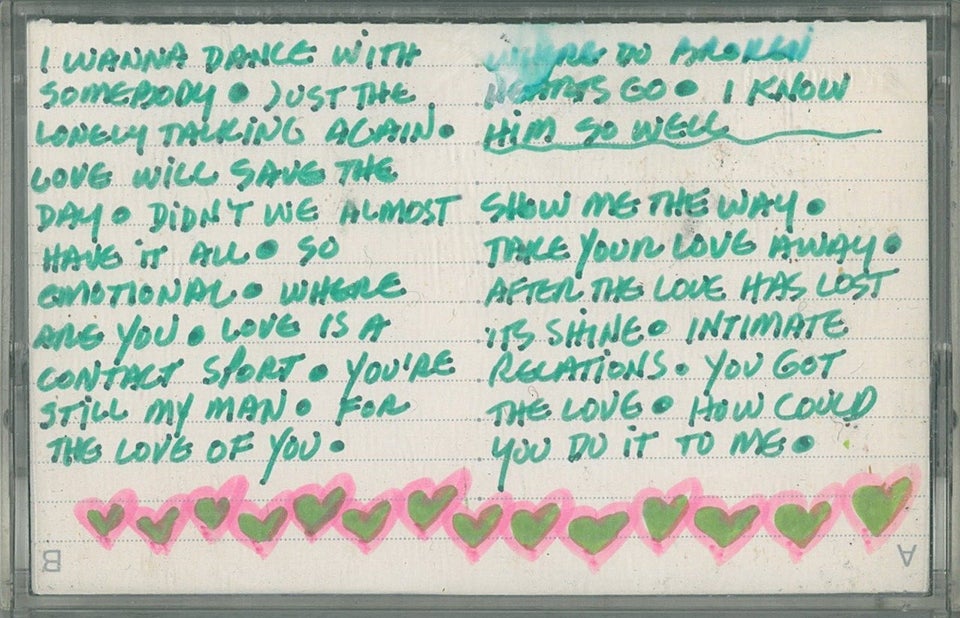 I WANNA DANCE WITH
SOMEBODY • JUST THE
LONELY TALKING AGAIN •
LOVE WILL SAVE THE
DAY • DIDN'T WE ALMOST
HAVE IT ALL • SO
EMOTIONAL • WHERE
ARE YOU • LOVE IS A
CONTACT SPORT • YOU'RE
STILL MY MAN • FOR
THE LOVE OF YOU •
WHERE DO BROKEN
HEARTS GO • I KNOW
HIM SO WELL
SHOW ME THE WAY •
TAKE YOUR LOVE AWAY •
AFTER THE LOVE HAS LOST
ITS SHINE • INTIMATE
RELATIONS • YOU GOT
THE LOVE • HOW COULD
YOU DO IT TO ME •
B
A